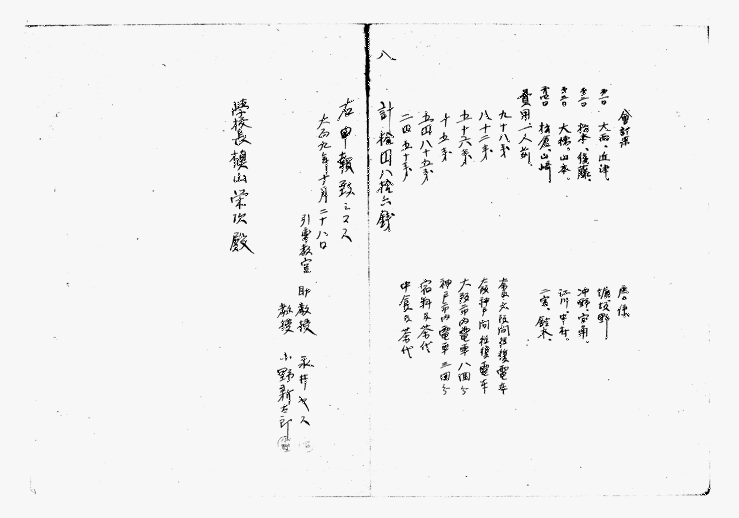 會計係
第一日 大西、近津、
第二日 松本、後藤、
第三日 大橋、山本、
第四日 柏原、山崎、
庶ム係
堀、坂野、
沖野、宮南、
江川、中村、
二宮、鈴木、
八、
費用、一人前、
九十八錢 奈良大阪間往復電車
八十二錢 大阪神戸間往復電車
五十六錢 大阪市内電車八回分
十五錢 神戸市内電車三回分
五円八十五錢 宿料及茶代
二円五十錢 中食及茶代
計 拾円八拾六錢
右申報致シマス
大正九年十月二十八日
引率教官 助教授 永井ヤス
教授 小野新太郎
學校長 槇山栄次殿